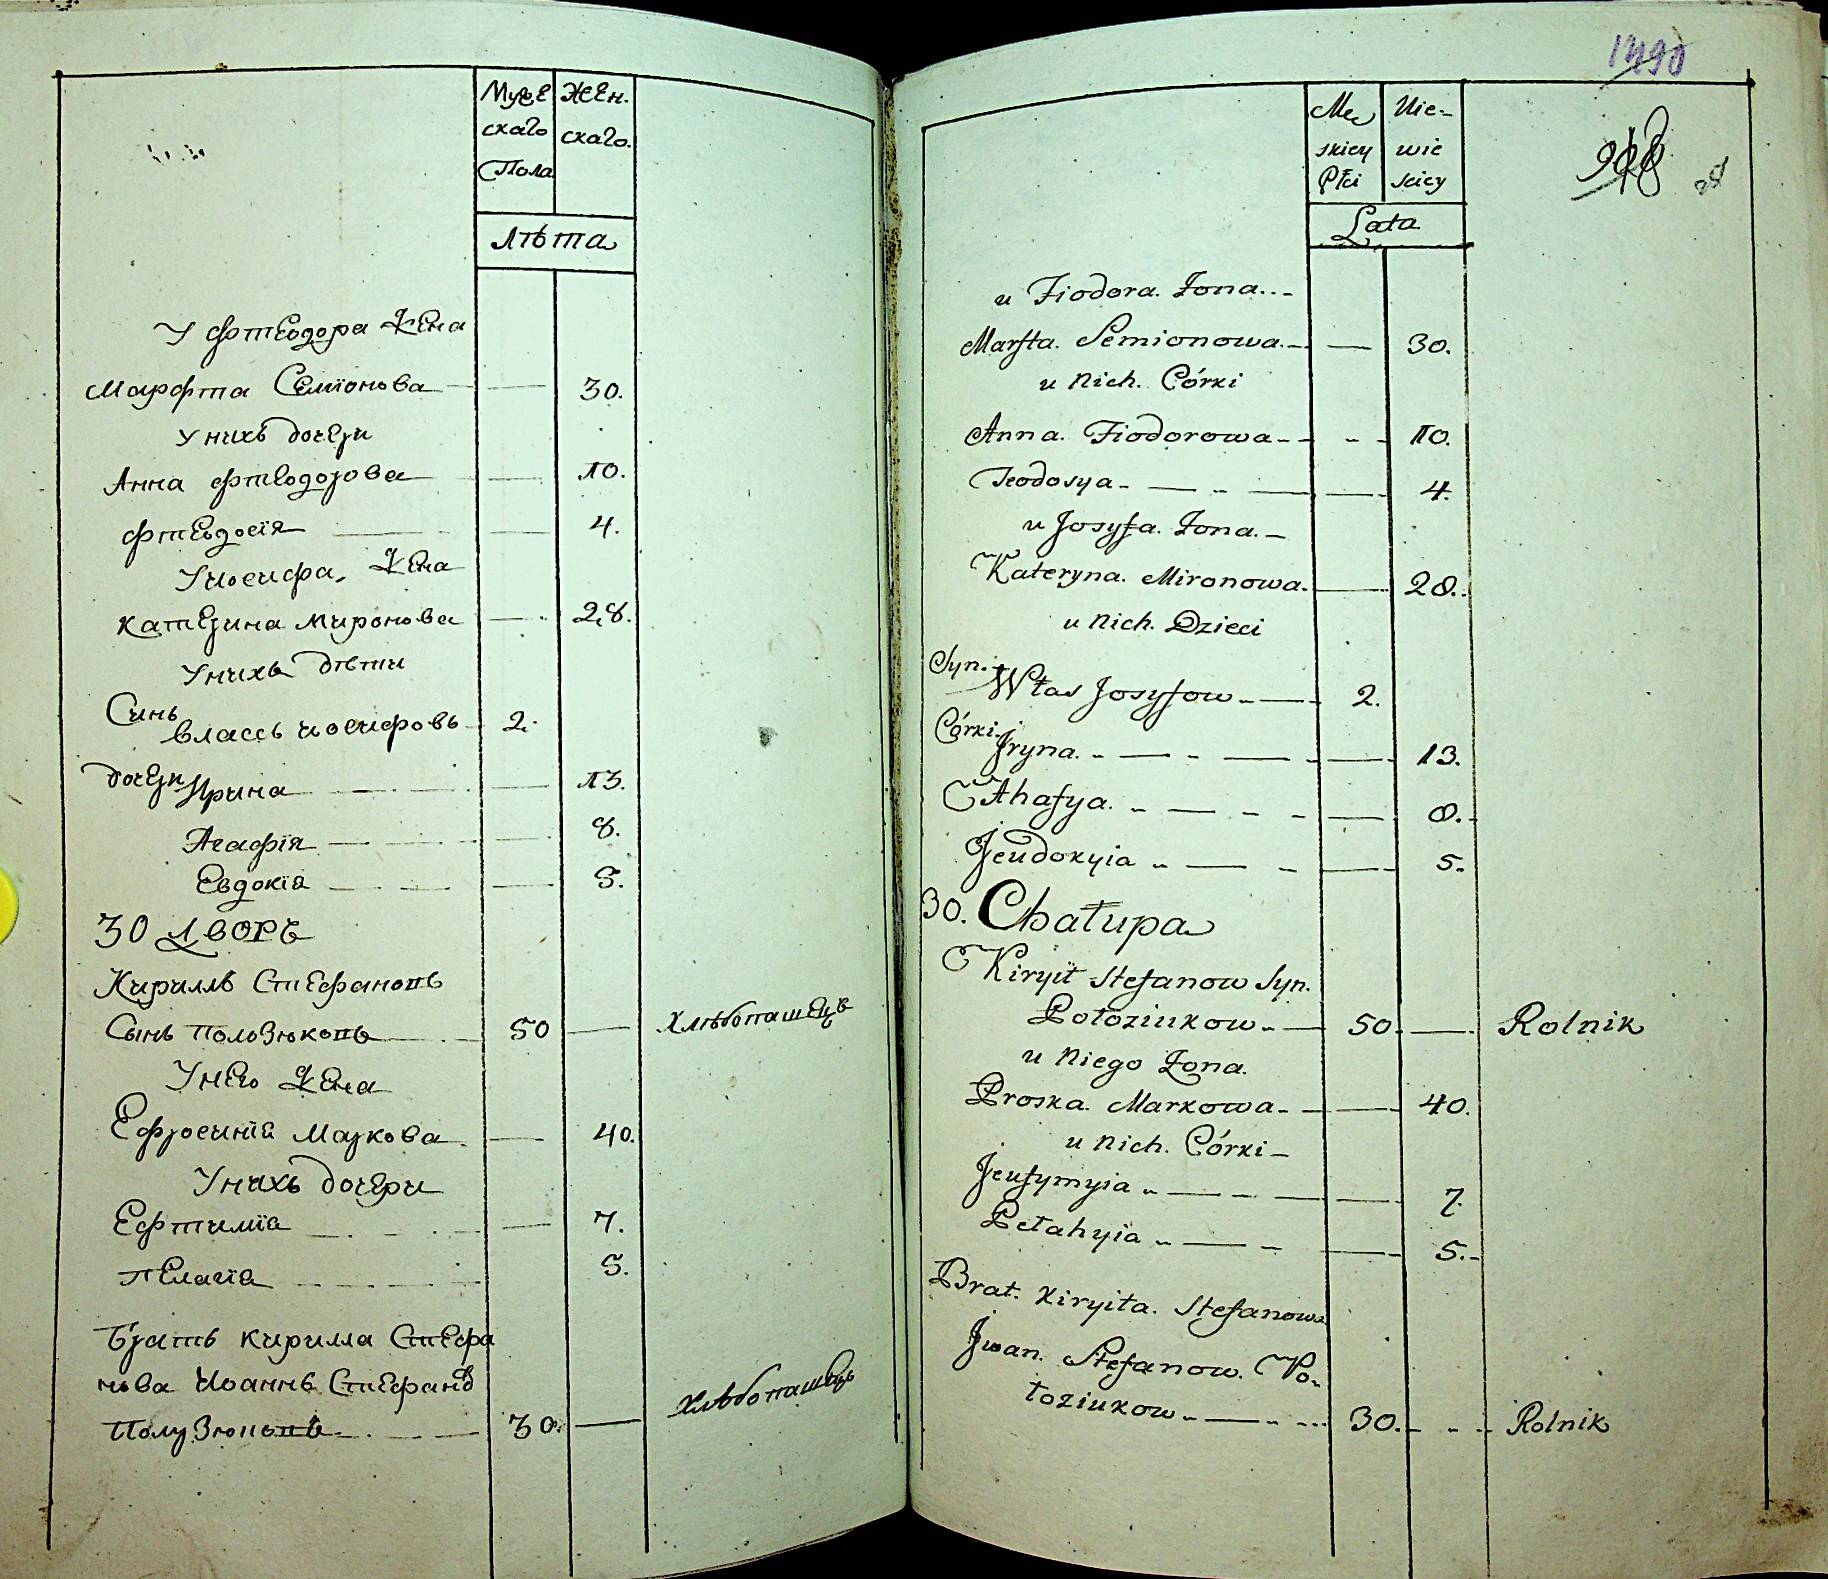 Муже Жен-
скаго скаго.
Пола
Лѣта
У Фтеодора Жена
Марфта Семіонова 30.
У нихъ дочери
Анна Фтеодорова 10.
Фтеодосія 4.
У иосифа, Жена
Катерина Миронова 28.
У нихъ дѣти
Синь
Власъ иосифовъ 2.
дочери Ирина 13.
Агафія 8.
Евдокія 5.
30 Дворъ
Кириллъ Стефановъ
Сынъ Полозюковъ 50 Хлѣбопашецъ
У Него Жена
Ефросинія Маркова 40.
У нихъ дочери
Ефтимія 7.
Пелагія 5.
Братъ Кирилла Стефа
нова Иоаннъ Стефановъ
Полузюковъ 30. Хлѣбопашецъ
1490
Mę Nie-
skiey wie
Płci sciey
Lata
u Fiodora. Żona...
Marfta. Semionowa. 30.
u Nich. Córki
Anna. Fiodorowa 10.
Teodosya 4.
u Josyfa. Żona.
Kateryna. Mironowa. 28.
u Nich. Dzieci
Syn.
Własz Josyfow 2.
Córki.
Jryna. 13.
Ahafya. 8.
Jeudokyia 5.
30. Chałupa
Kirył Stefanow Syn.
Połoziukow 50. Rolnik
u Niego Żona.
Proska. Markowa 40.
u Nich. Córki
Jeufymyia 7.
Pełahyia 5.
Brat. Kiryiła. Stefanowa
Jwan. Stefanow. Po-
łoziukow 30. Rolnik